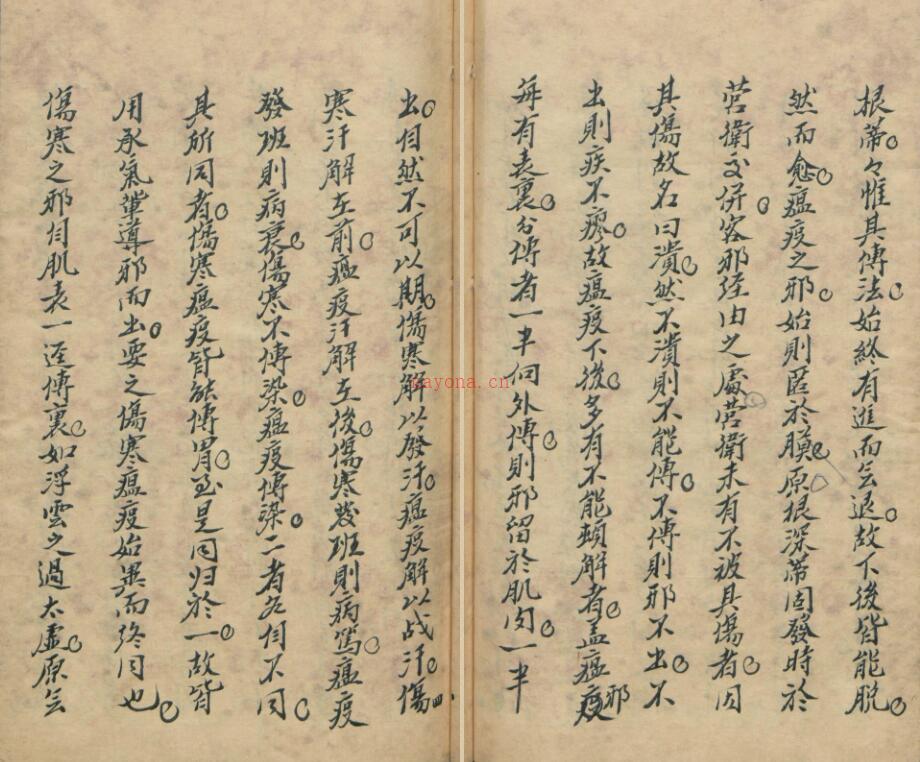 根蒂々惟其傳法始終有進而无退故下後皆能脫
然而愈瘟疫之邪始則匿於膜原根深蒂固發時於
营衛交併客邪经由之處营衛未有不被其傷者因
其傷故名曰潰然不潰則不能傳不傳則邪不出不
出則疾不瘳故瘟疫下後多有不能頓解者盖瘟疫邪
每有表裏分傳者一半向外傳則邪留於肌肉一半
出自然不可以期傷寒解以發汗瘟疫解以战汗傷
寒汗解在前瘟疫汗解在後傷寒發班則病篤瘟疫
發班則病衰傷寒不傳染瘟疫傳染二者各自不同
其所同者傷寒瘟疫皆能傳胃至是同归於一故皆
用承氣輩導邪而出要之傷寒瘟疫始異而终同也
傷寒之邪自肌表一逕傳裏如浮雲之過太虛原无
nayona.cn